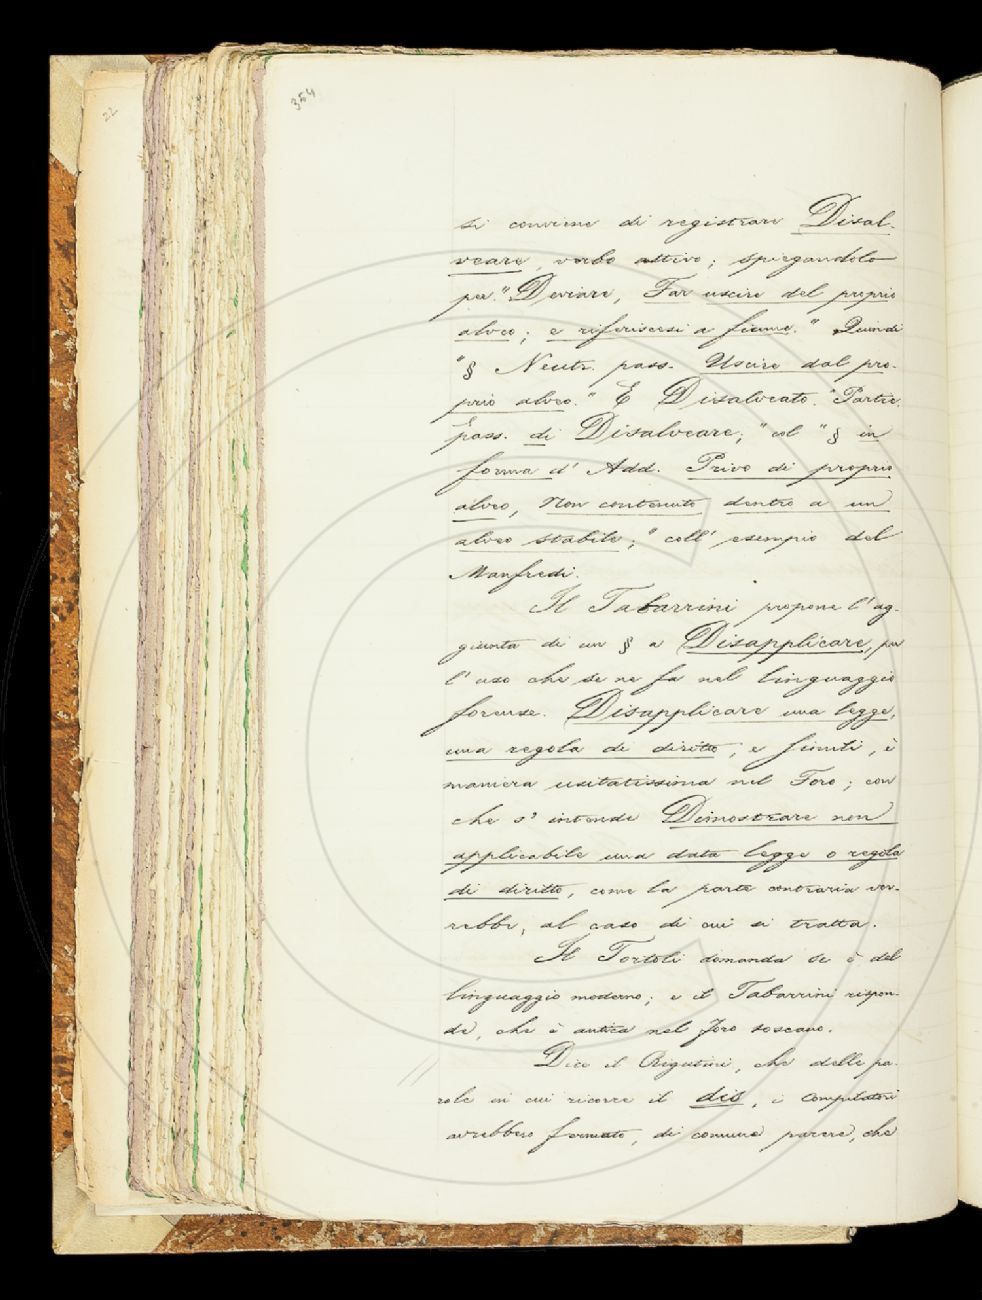 22
354
si conviene di registrare Disal-
veare, verbo attivo; spiegandolo
per "Deviare, Far uscire del proprio
alveo; e riferiscesi a fiume." Quindi
"§ Neutr. pass. Uscire dal pro-
prio alveo." E Disalveato. "Partic.
pass. di Disalveare;" col "§ in
forma d' Add. Privo di proprio
alveo, Non contenuto dentro a un
alveo stabile;" coll' esempio del
Manfredi.
Il Tabarrini propone l' ag-
giunta di un § a Disapplicare, per
l' uso che se ne fa nel linguaggio
forense. Disapplicare una legge,
una regola di diritto, e simili, è
maniera usitatissima nel Foro; con
che s' intende Dimostrare non
applicabile una data legge o regola
di diritto, come la parte contraria vor-
rebbe, al caso di cui si tratta.
Il Tortoli domanda se è del
linguaggio moderno; e il Tabarrini rispon-
de, che è antica nel Foro toscano.
Dice il Rigutini, che delle pa-
role in cui ricorre il dis, i Compilatori
avrebbero formato, di comune parere, che